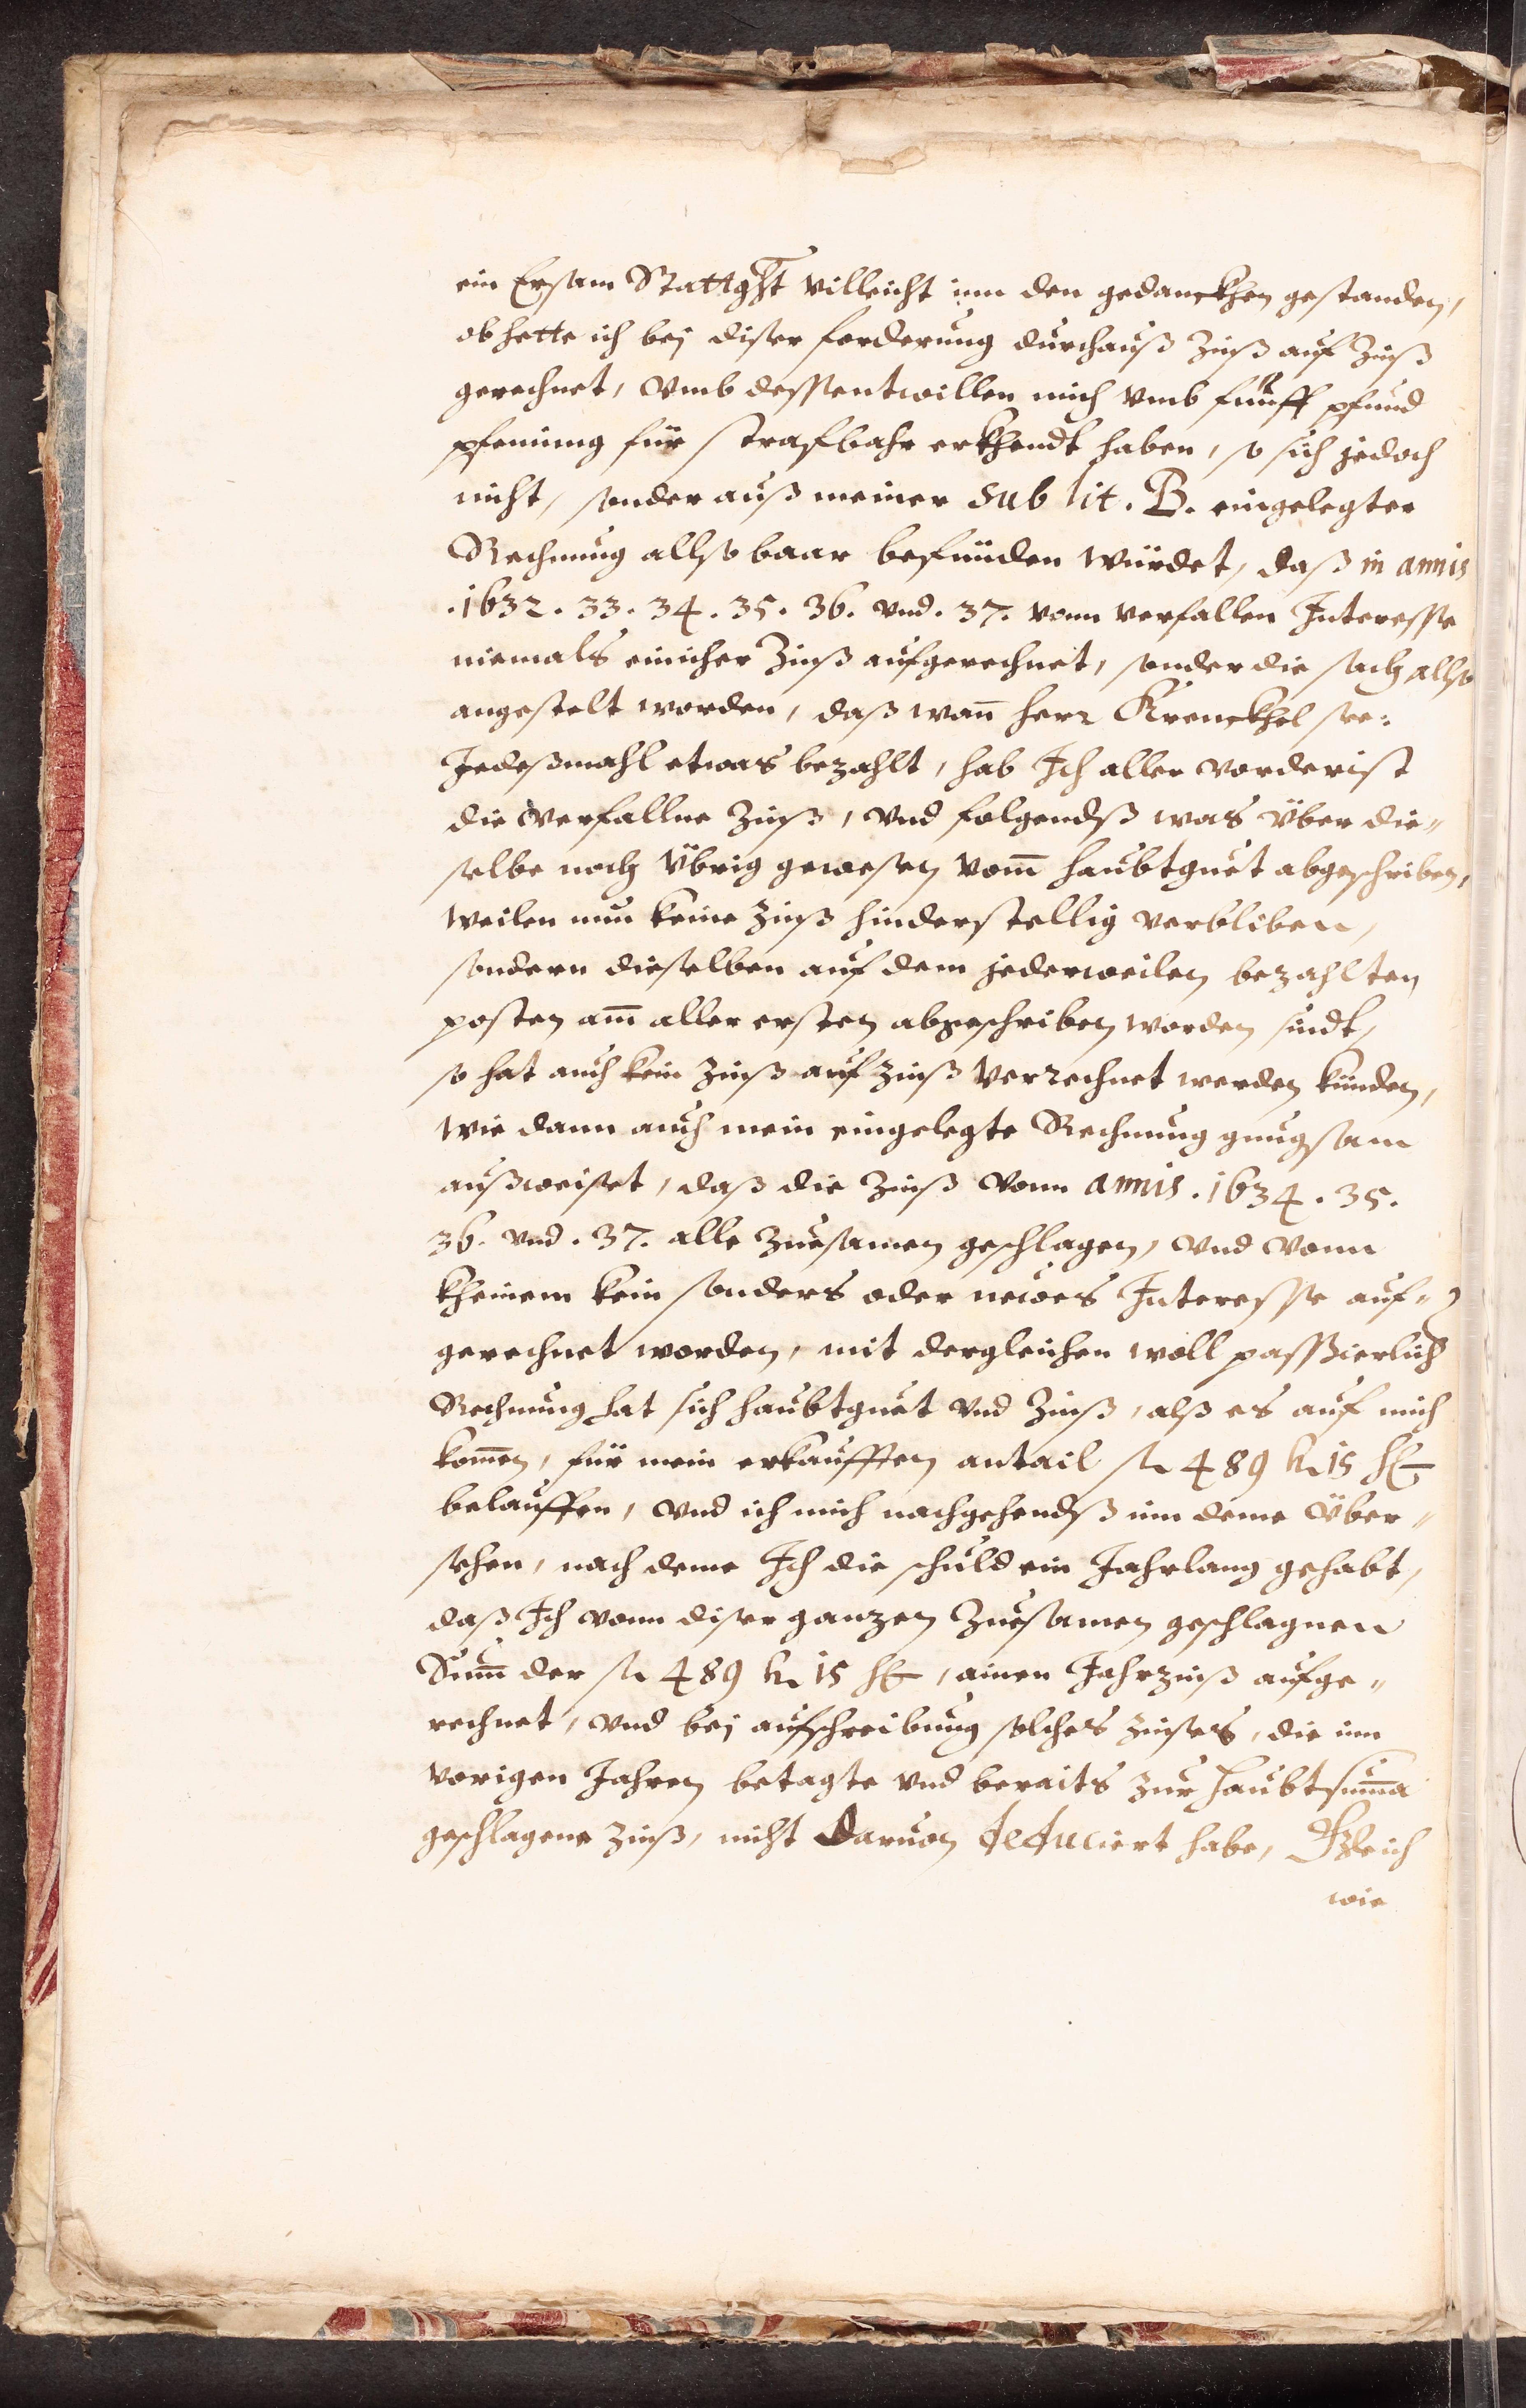 ein Ersam Stattght villeicht inn den gedanckhen gestanden,
ob hette ich bej diser forderung durchauß Zinß auf Zinß
gerechnet, vmb dessentwillen mich vmb fünff pfund
pfening für strafbahr erkhendt haben, so sich jedoch
nicht, sonder auß meiner sub lit. B. eingelegter
Rechnung allso baar befünden würdet, daß in annis
.1632. 33. 34. 35. 36. vnd. 37. vonn verfallen Interesse
niemals einicher Zinß aufgerechnet, sonder die sach allso
angestelt worden, daß wañ herr Krenckhel see:
Jedeßmahl etwas bezahlt, hab Ich aller vorderist
die verfallne Zinß, vnd folgendß was über die„
selbe noch übrig gewesen vom̄ haubtguet abgeschriben,
weilen nun keine Zinß hinderstellig verbliben,
sondern dieselben auf dem jederweilen bezahlten
posten am̄ aller ersten abgeschriben worden sindt,
so hat auch kein Zinß auf Zinß verrechnet werden künden,
wie dann auch mein eingelegte Rechnung gnugsam
außweiset, daß die Zinß vonn annis. 1634. 35.
36. vnd. 37. alle Zuesamen geschlagen, vnd vonn
kheinem kein sonders oder newes Interesse auf„
gerechnet worden, mit dergleichen woll passierlich
Rechnung hat sich haubtguet vnd Zinß, alß es auf mich
kom̄en, für mein erkaufften antail fl 489 kr 15 hlr
belauffen, vnd ich mich nachgehendß inn deme über„
sehen, nach deme Ich die schuld ein Jahrlang gehabt,
daß Ich vonn diser ganzen Zuesamen geschlagnen
Sum̄ der fl 489 kr 15 hlr, ainen Jahrzinß aufge„
rechnet, vnd bej aufschreibung solches Zinses, die inn
vorigen Jahren betagte vnd beraits zur haubtsum̄a
geschlagene Zinß, nicht daruon deduciert habe, Gleich
wie